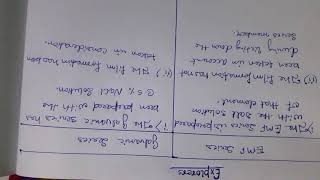 Explorers
EMF Series
Galvanic Series
i) The EMF Series is prepared
with the salt solution
of that element.
i) The galvanic series has
been prepared with the
@ 6% NaCl Solution.
(ii) The film formation has not
been taken in account
during listing down the
Series number.
(ii) The film formation has been
taken in consideration.